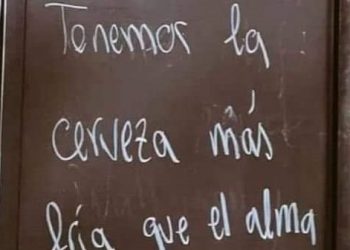 Tenemos la
cerveza más
fría que el alma